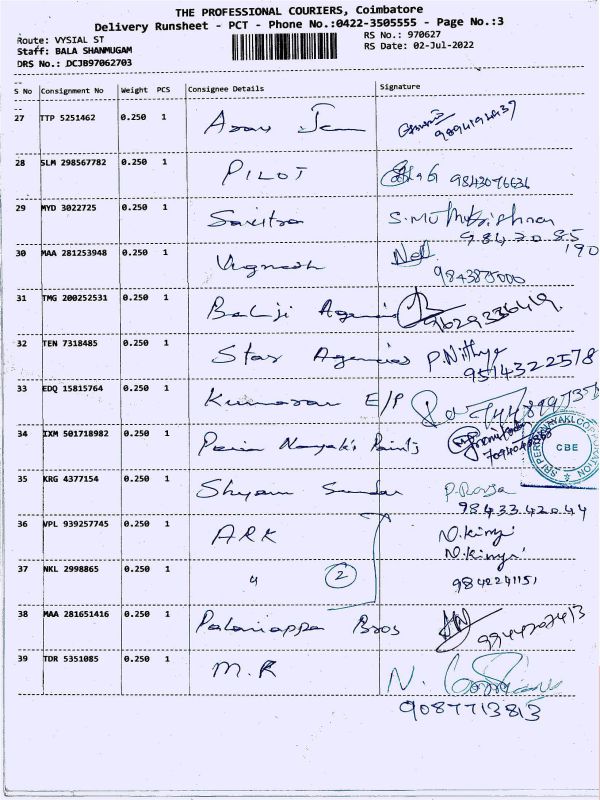 THE PROFESSIONAL COURIERS, Coimbatore
Delivery Runsheet - PCT - Phone No.:0422-3505555 - Page No.:3
Route: VYSIAL ST RS No.: 970627
Staff: BALA SHANMUGAM RS Date: 02-Jul-2022
DRS No.: DCJB97062703
S No Consignment No Weight PCS Consignee Details Signature
27 TTP 5251462 0.250 1
28 SLM 298567782 0.250 1 PILOT 9843076636
29 MYD 3022725 0.250 1 Savitra S. Muthukrishnan
984 20 85
190
30 MAA 281253948 0.250 1 Vignesh
9843875000
31 TMG 200252531 0.250 1 Balaji Agencies
9629336419
32 TEN 7318485 0.250 1 Star Agencies P. Nithya
9514322578
33 EDQ 15815764 0.250 1 Kumaran E/P
34 IXM 501718982 0.250 1 Nayaki Paints
CBE
35 KRG 4377154 0.250 1 Shyam Sundar P. Roosa
98433 42044
36 VPL 939257745 0.250 1 ARK
37 NKL 2998865 0.250 1 " 2
9842241151
38 MAA 281651416 0.250 1 Palaniappa Bros
39 TDR 5351085 0.250 1 M.R N.
9087713813